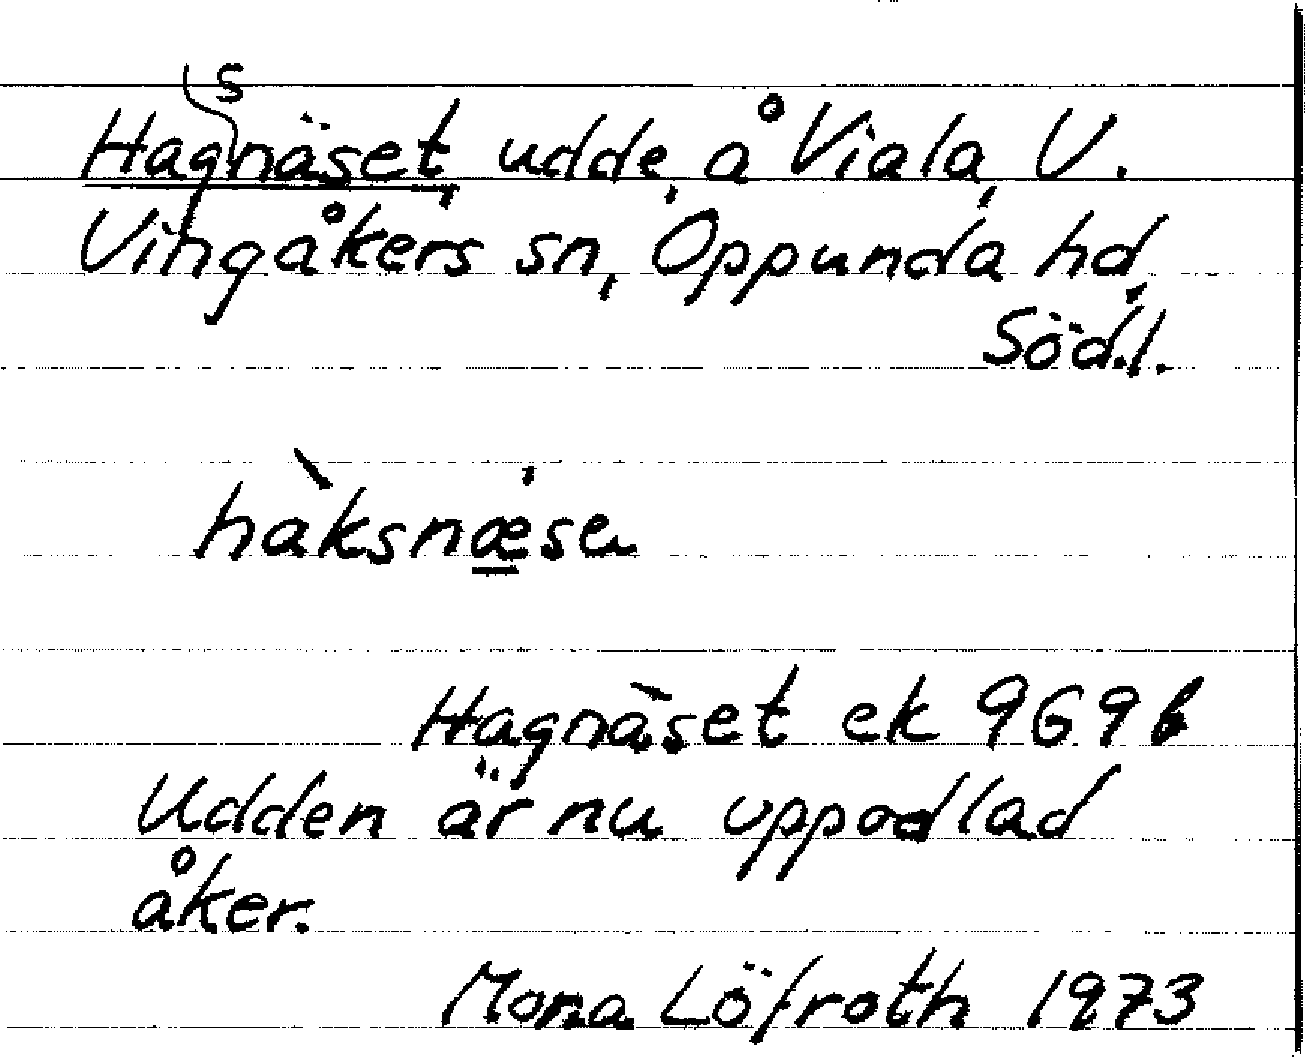 Hagsnäset, udde, å Viala, V.
Vingåkers sn, Oppunda hd,
Södl.
hàksnæ̲se
Hagnäset ek 969 b
Udden är nu uppodlad
åker.
Mona Löfroth 1973